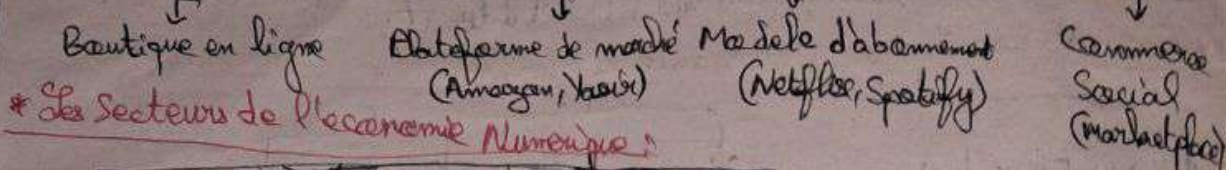 Boutique en ligne
Plateforme de marché
(Amazon, Yassir)
Modele d'abonnement
(Netflix, Spotify)
Commerce
Social
(marketplace)
* Les Secteurs de l'economie Numerique :